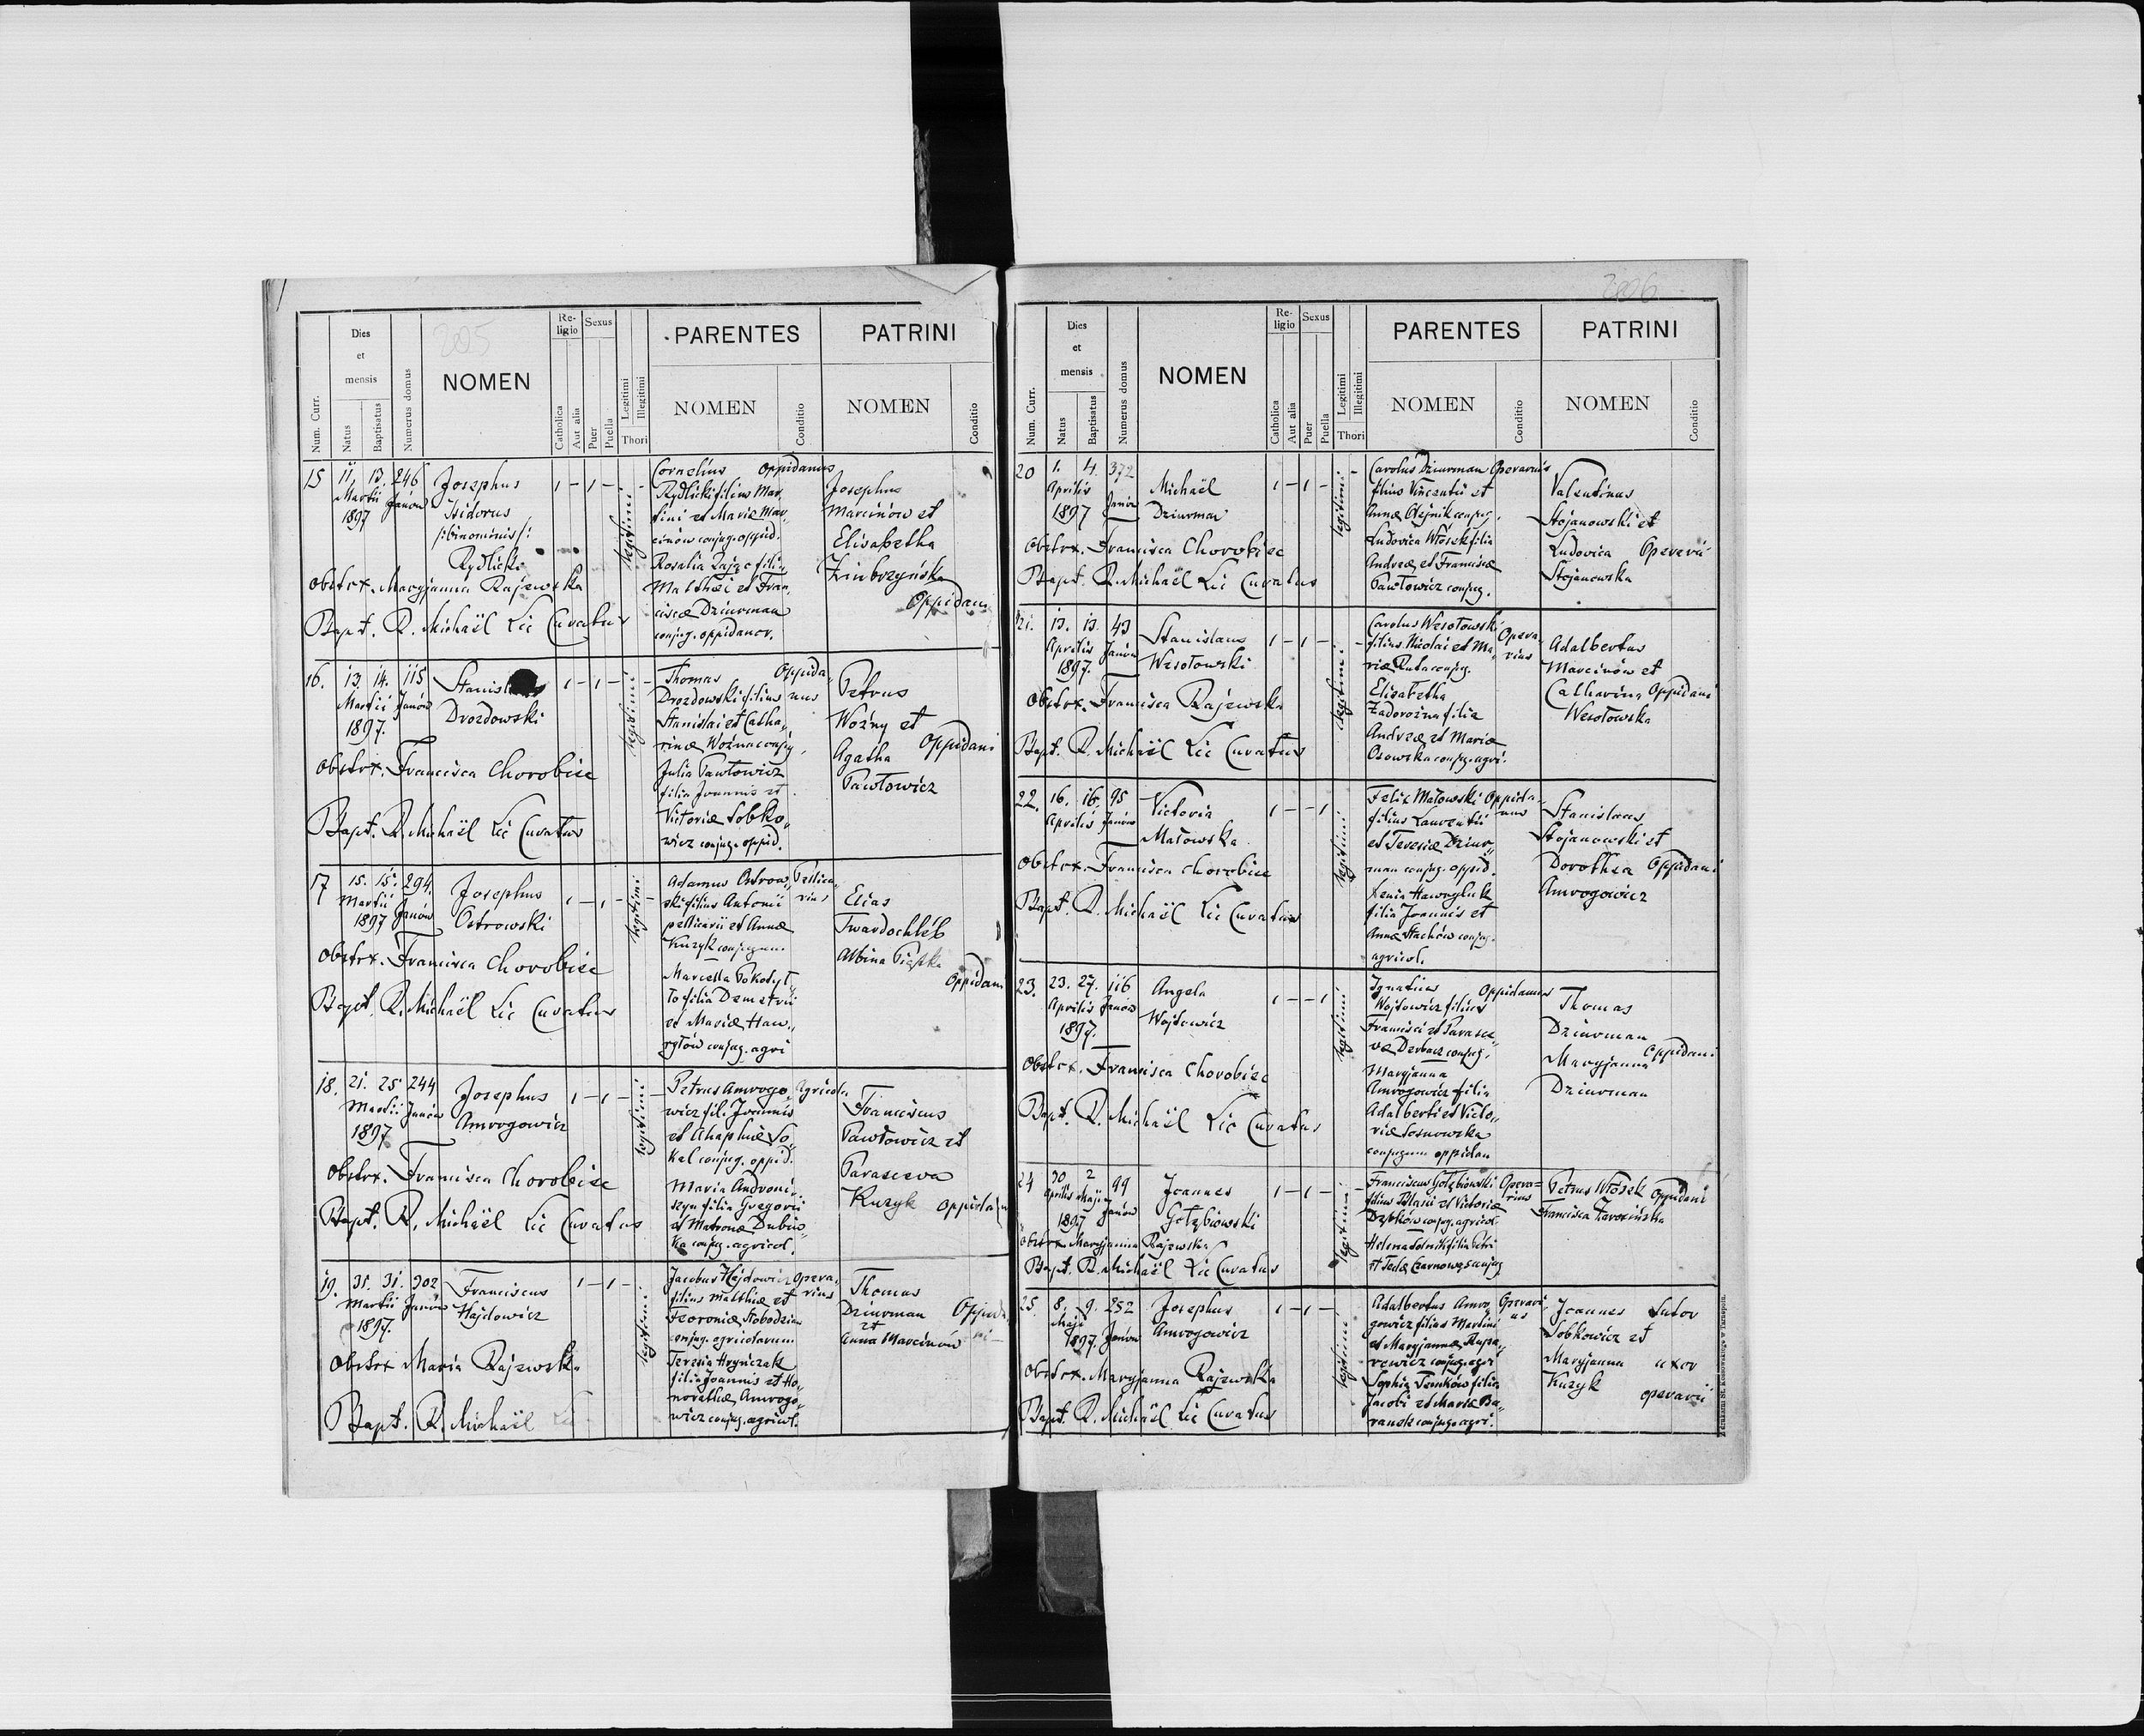 205
Num. Curr.
Dies et mensis
Natus
Baptisatus
Numerus domus
NOMEN
Religio
Catholica
Aut alia
Sexus
Puer
Puella
Legitimi
Illegitimi
Thori
PARENTES
NOMEN
Conditio
PATRINI
NOMEN
Conditio
15 11. 13. 246
Martii Janów
1897
Josephus
Isidorus
/:binominis/:
Rydlicki
1 – 1 – legitimi –
Obstrx. Maryjanna Rajewska
Bapt. R. Michaël Lic Curatus
Cornelius Oppidanus
Rydlicki filius Mar,,
tini et Mariæ Mar,,
cinów conjug. oppid.
Rosalia Zając filia
Matthæi et Fran,,
ciscæ Dziurman
conjug. oppidanor.
Josephus
Marcinów et
Elisabetha
Oppidani
16. 13. 14. 115
Martii Janów
1897.
Drozdowski
1 – 1 – legitimi –
Obstrx. Francisca Chorobisc
Bapt. R. Michaël Lic Curatus
Thomas Oppida,,
Drozdowski filius nus
Stanislai et Catha,,
rinæ Woźna conjug.
Julia Pawłowicz
filia Joannis et
Victoriæ Sobko,,
wicz conjug. oppid.
Petrus
Woźny et
Agatha Oppidani
Pawłowicz
17 15. 15. 294.
Martii Janów
1897
Josephus
Ostrowski
1 – 1 – legitimi –
Obstrx. Francisca Chorobisc
Bapt. R. Michaël Lic Curatus
Adamus Ostrow,, Pellica,,
ski filius Antonii rius
pellicarii et Annæ
Kuzyk conjugum
Marcella
filia Demetrii
et Mariæ Haw,,
ryłów conjug. agri
Elias
Twardochléb
Albina
Oppidani
18. 21. 25. 244
Martii Janów
1897
Josephus
Amrogowicz
1 – 1 – legitimi –
Obstrx. Francisca Chorobisc
Bapt. R. Michaël Lic Curatus
Petrus Amrogo,, Agricola
wicz fil. Joannis
et Ahaphiæ So,,
kal conjug. oppid.
Maria
filia Gregorii
et Matronæ
conjug. agricol.
Franciscus
Pawłowicz et
Parasceva
Kuzyk oppidani
19. 31. 31. 302
Martii Janów
1897.
Franciscus
Hajdowicz
1 – 1 – legitimi
Obstrx Maria Rajewska
Bapt. R. Michaël
Jacobus Hajdowicz Opera,,
filius Matthiæ et rius
Feoroniæ Słobodzian
conjug. agricolarum
Teresia Hryńczak
filia Joannis et Ho,,
norathæ Amrogo,,
wicz conjug. agricol.
Thomas
Dziurman
et
Anna Marcinów
206
Num. Curr.
Dies et mensis
Natus
Baptisatus
Numerus domus
NOMEN
Religio
Catholica
Aut alia
Sexus
Puer
Puella
Legitimi
Illegitimi
Thori
PARENTES
NOMEN
Conditio
PATRINI
NOMEN
Conditio
20 1. 4. 372
Aprilis Janów
1897
Michaël
Dziurman
1 – 1 – legitimi –
Obstrx. Francisca Chorobisc
Bapt. R. Michaël Lic Curatus
Carolus Dziurman Operarius
filius Vincentii et
Annæ Olejnik conjug.
Ludovica Włósek filia
Andreæ et Franciscæ
Pawłowicz conjug.
Valentinus
Stojanowski et
Ludovica Operarii
Stojanowska
21. 13. 13. 43
Aprilis Janów
1897.
Stanislaus
Wesołowski
1 – 1 – legitimi –
Obstrx. Francisca Rajewska
Bapt. R. Michaël Lic Curatus
Carolus Wesołowski Opera,,
filius Nicolai et Ma,, rius
riæ Ruta conjug.
Elisabetha
Zadorożna filia
Andreæ et Mariæ
Osowska conjug. agri.
Adalbertus
Marcinów et
Catharina Oppidani
Wesołowska
22. 16. 16. 95
Aprilis Janów
Victoria
Małowska
1 – – 1 legitimi
Obstrx. Francisca Chorobisc
Bapt. R. Michaël Lic Curatus
Felix Małowski Oppida,,
filius Laurentii nus
et Teresiæ Dziur,,
man conjug. oppid.
Xenia Hawryluk
filia Joannis et
Annæ Stachów conjug.
agricol.
Stanislaus
Stojanowski et
Dorothea Oppidani
Amrogowicz
23. 23. 27. 116
Aprilis Janów
1897.
Angela
Wojtowicz
1 – – 1 legitimi
Obstrx. Francisca Chorobisc
Bapt. R. Michaël Lic Curatus
Ignatius Oppidanus
Wojtowicz filius
Francisci et Parasce,,
væ Derbacz conjug.
Maryjanna
Amrogowicz filia
Adalberti et Victo,,
riæ Sosnowska
conjugum oppidan
Thomas
Dziurman
Maryjanna Oppidani
Dziurman
24 30 2 99
Aprilis Maji Janów
1897
Joannes
Gołębiowski
1 – 1 – legitimi –
Obstrx Maryjanna Rajewska
Bapt. R. Michaël Lic Curatus
Franciscus Gołębiowski Opera=
filius Blasii et Victoriæ rius
conjug. agricol.
Helena filia Petri
et Teclæ conjug
Petrus Włósek Oppidani
Francisca
25. 8. 9. 252
Maji
1897. Janów
Josephus
Amrogowicz
1 – 1 – legitimi
Obstrx. Maryjanna Rajewska
Bapt. R. Michaël Lic Curatus
Adalbertus Amro,, Operari,,
gowicz filius Martini us
et Maryjannæ
conjug. agri
Sophia filia
Jacobi et Mariæ Ba,,
raniuk conjug. agri.
Joannes Sutor
Sobkowicz et
Maryjanna uxor
Kuzyk operarii